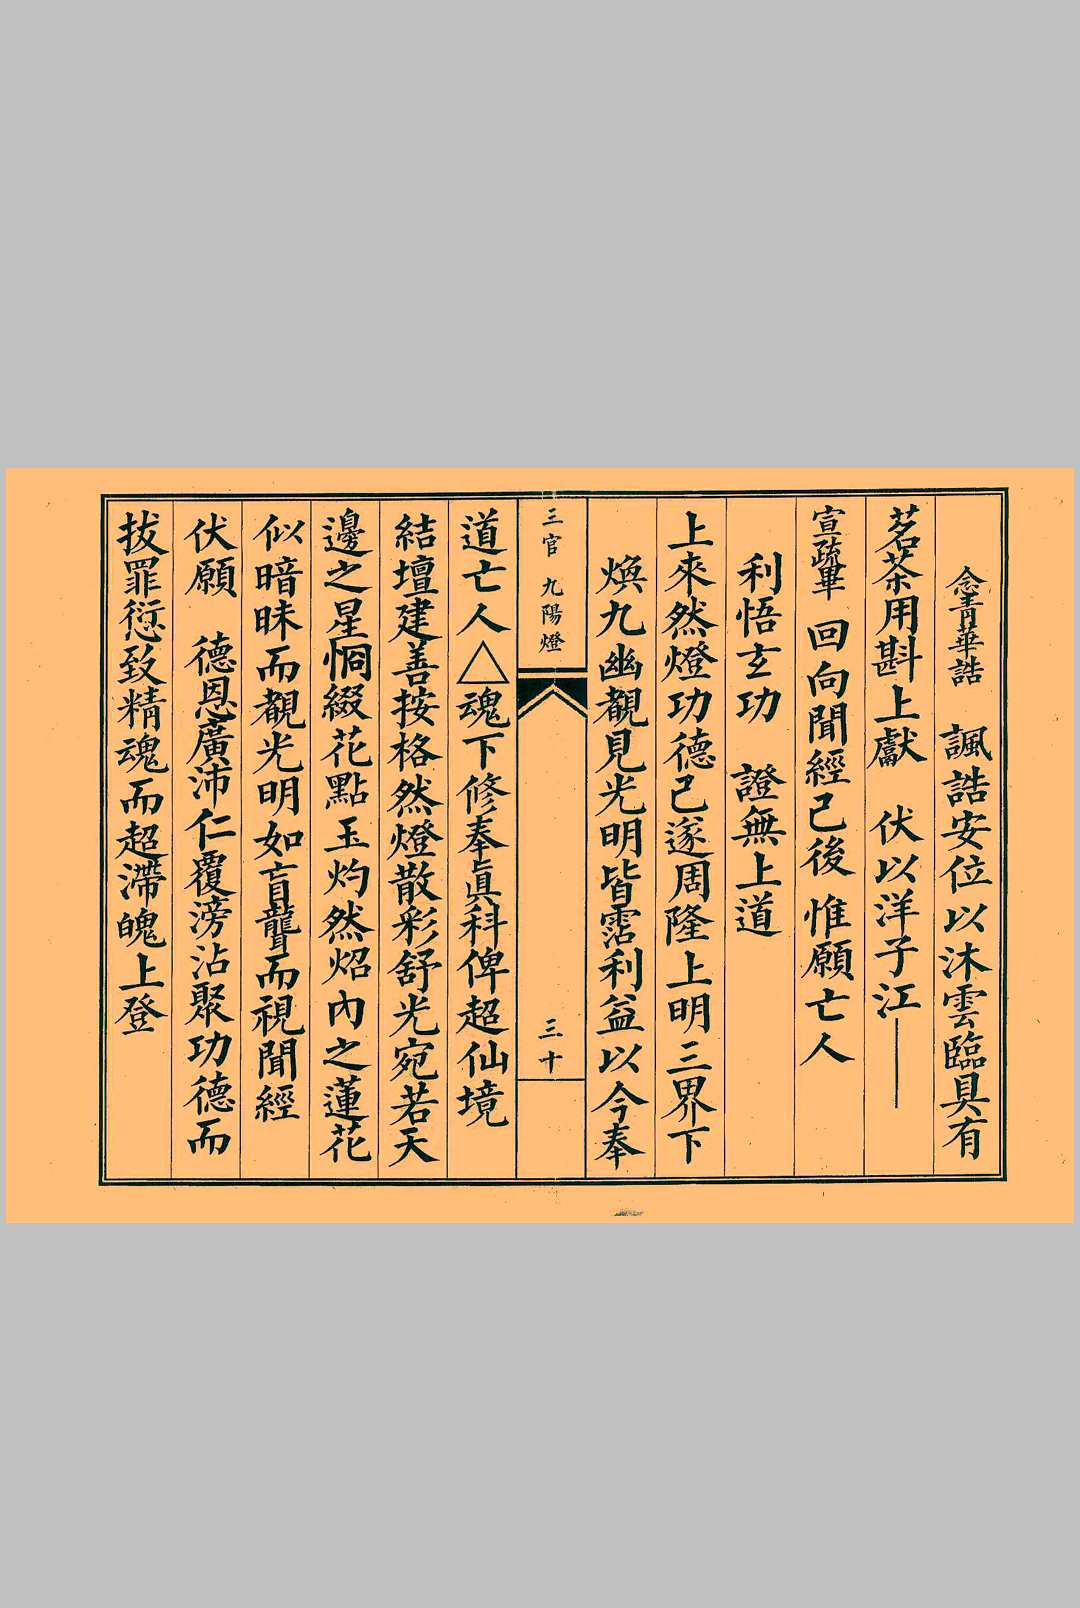 念青華誥　諷誥安位以沐雲臨具有
茗茶用斟上獻　伏以洋子江——
宣疏畢　回向聞經已後　惟願亡人
利悟玄功　證無上道
上來然燈功德已遂周隆上明三界下
煥九幽覩見光明皆霑利益以今奉
三官　九陽燈　三十
道亡人△魂下修奉眞科俾超仙境
結壇建善按格然燈散彩舒光宛若天
邊之星惘綴花點玉灼然炤內之蓮花
似暗昧而覩光明如盲聾而視聞經
伏願　德恩廣沛仁覆滂沾聚功德而
拔罪愆致精魂而超滯魄上登